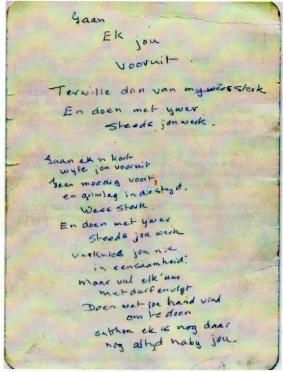 Gaan
Ek
jou
vooruit.
Terwille dan van my wees sterk
En doen met ywer
Steeds jou werk.
Gaan ek 'n kort
wyle jou vooruit
Gaan moedig voort,
en glimlag in die stryd.
Wees Sterk
En doen met ywer
Steeds jou werk
Verknies jou nie
in eensaamheid!
Maar vul elk' uur
met durf en vlyt
Doen wat jou hand vind
om te doen
onthou ek is nog daar
nog altyd naby jou.